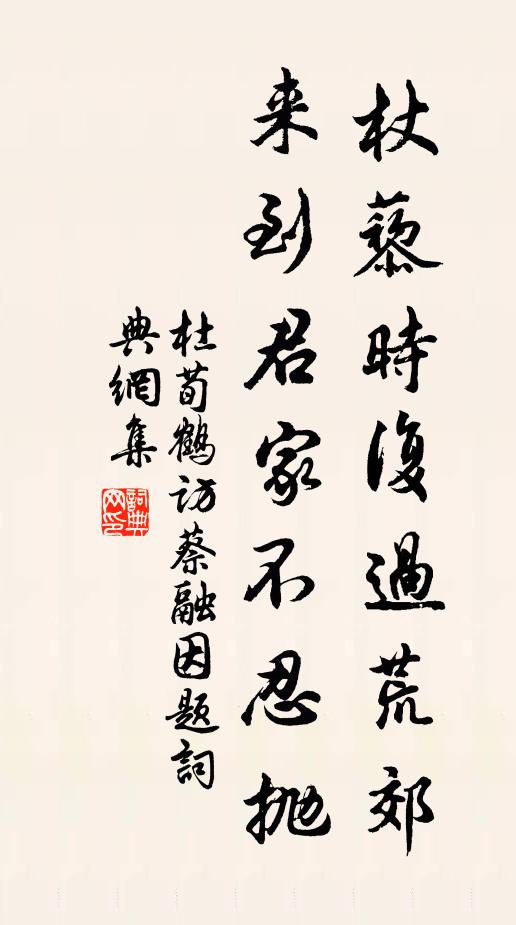 杖藜時復過荒郊
来到君家不忍拋
杜荀鶴訪蔡融因題詞
典網集
詞典
网印